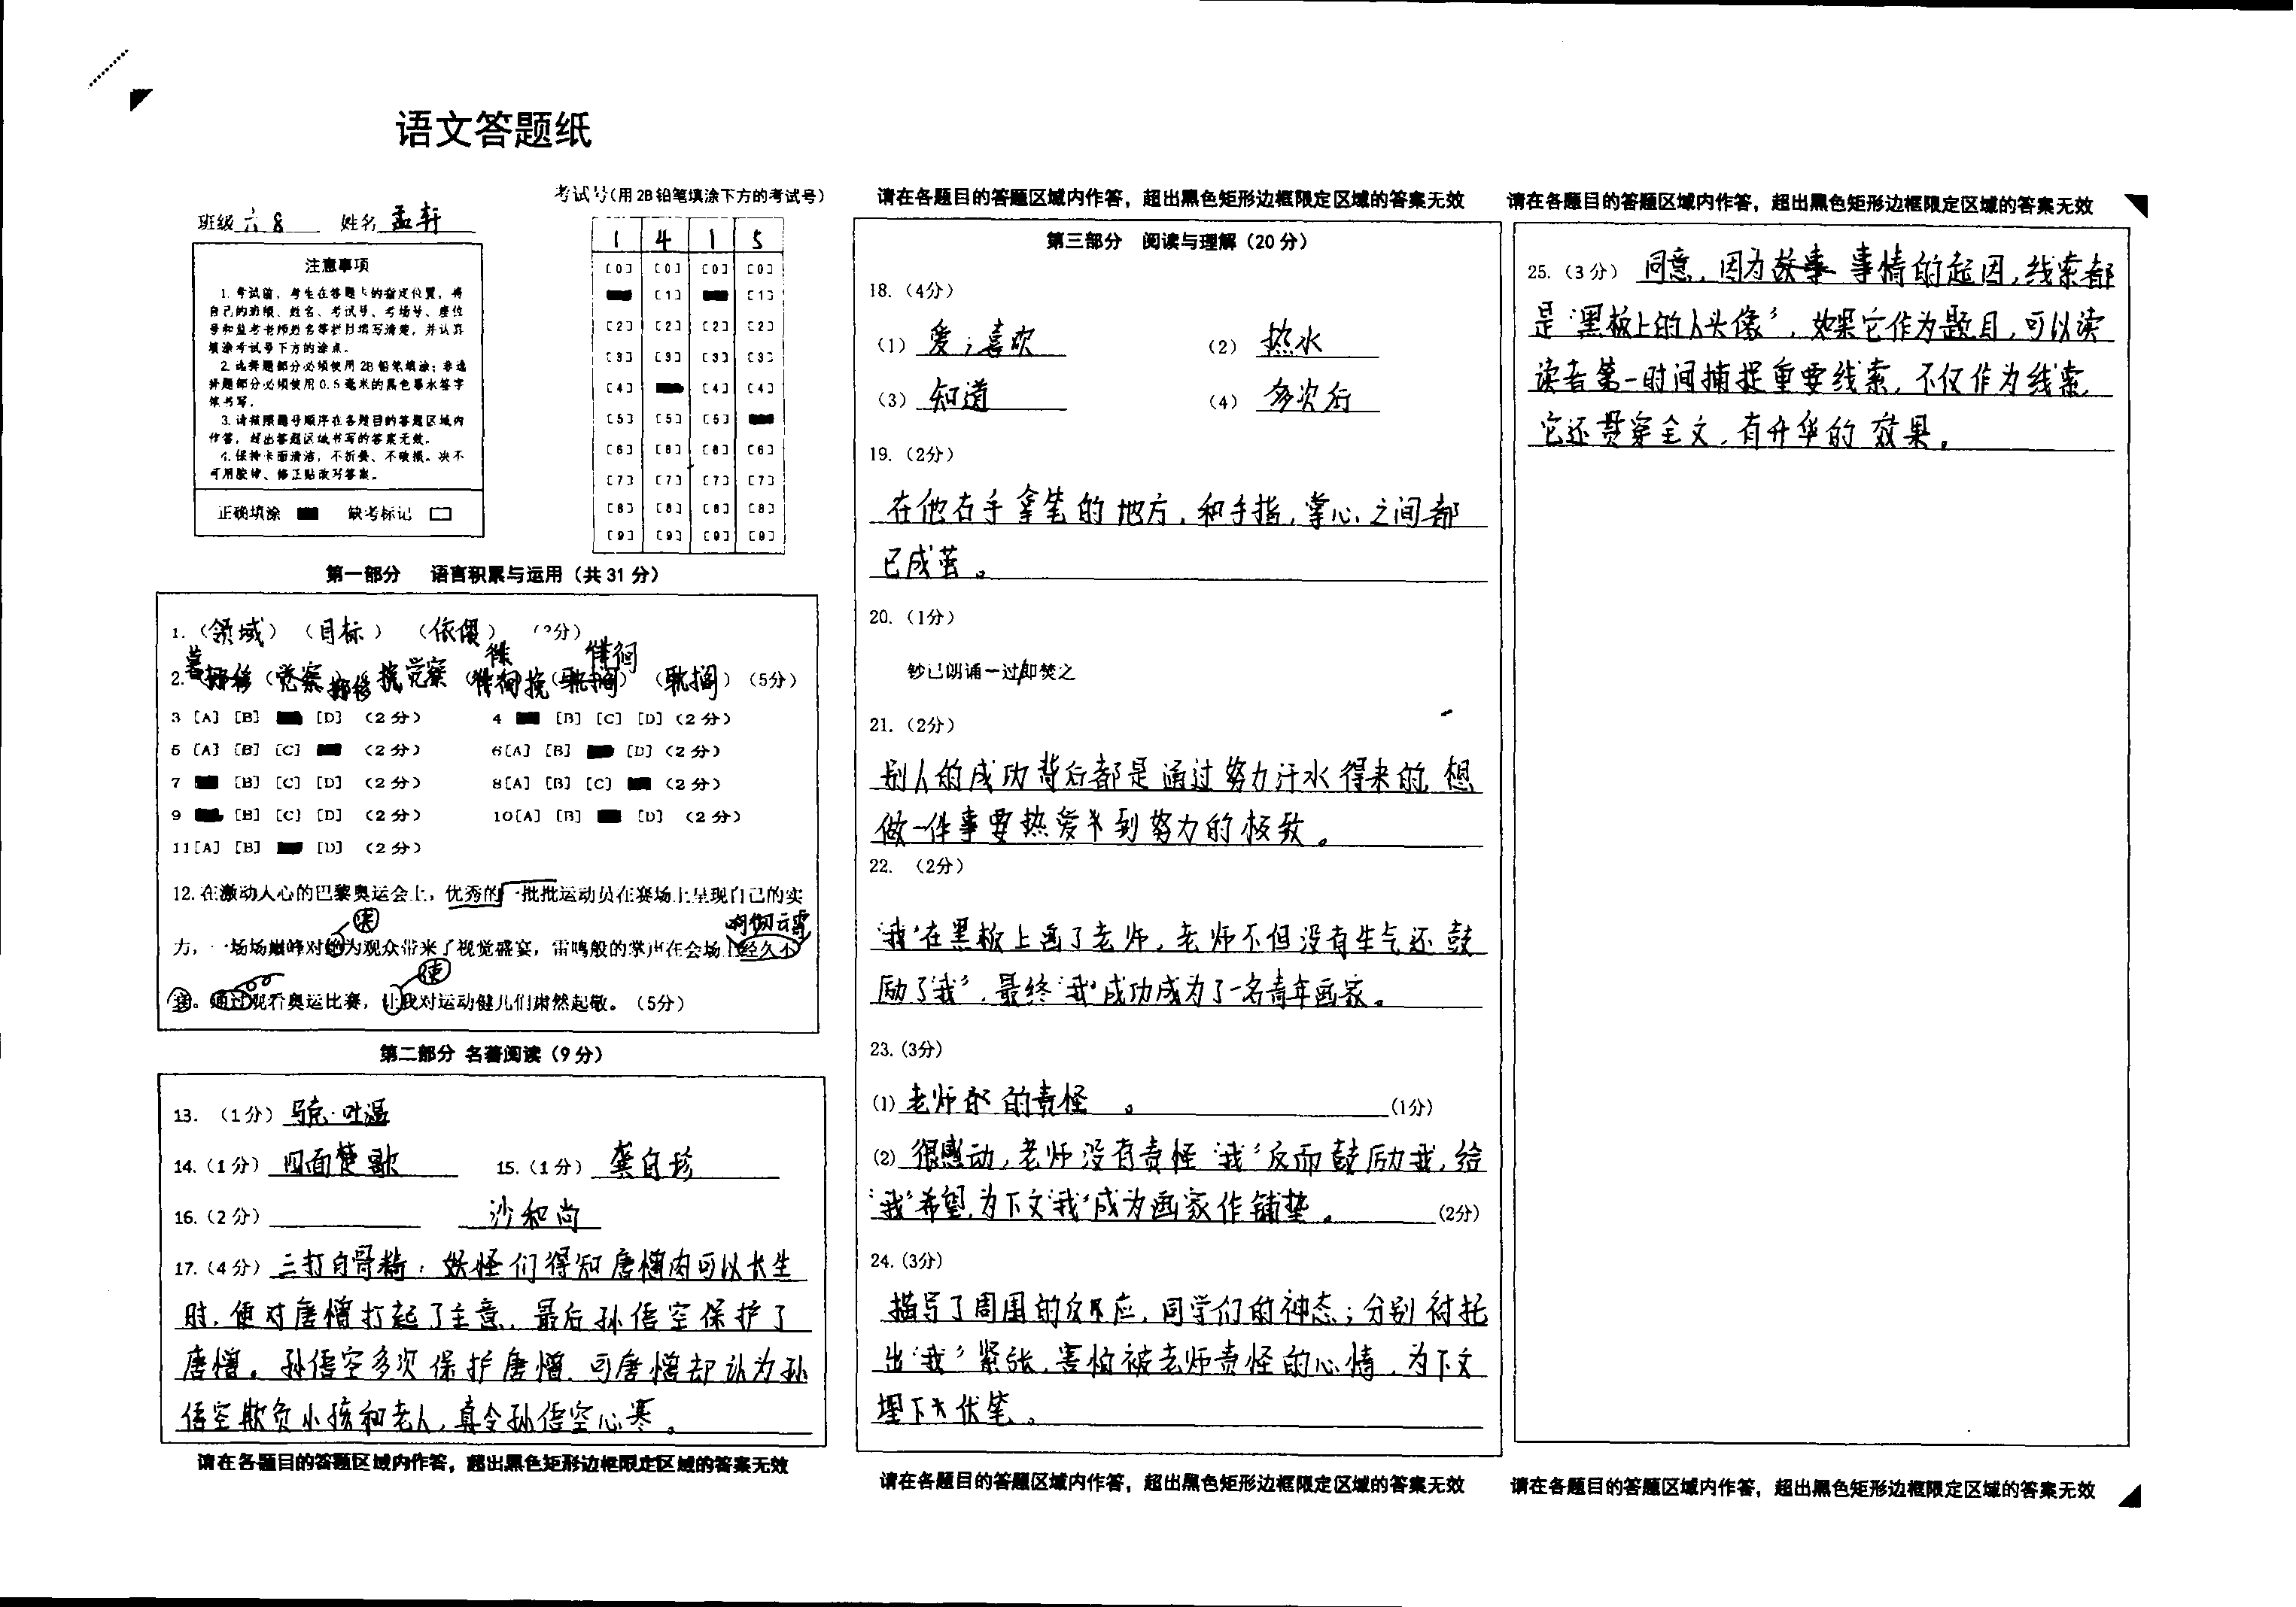 语文答题纸
班级 六8 姓名 孟轩
考试号(用2B铅笔填涂下方的考试号)
1 4 1 5
[0] [0] [0] [0]
[1] [1]
[2] [2] [2] [2]
[3] [3] [3] [3]
[4] [4] [4]
[5] [5] [5]
[6] [6] [6] [6]
[7] [7] [7] [7]
[8] [8] [8] [8]
[9] [9] [9] [9]
注意事项
1.考试前,考生在答题卡的指定位置,将
自己的班级、姓名、考试号、考场号、座位
号和监考老师姓名等栏目填写清楚,并认真
填涂考试号下方的涂点。
2.选择题部分必须使用2B铅笔填涂;非选
择题部分必须使用0.5毫米的黑色墨水签字
笔书写。
3.请按照题号顺序在各题目的答题区域内
作答,超出答题区域书写的答案无效。
4.保持卡面清洁,不折叠、不破损。决不
可用胶带、修正贴改写答案。
正确填涂 缺考标记
第一部分 语言积累与运用(共31分)
1.(领域)(目标)(依偎)
2. 觉察 挪移 (耽搁)(5分)
3 [A] [B] [D] (2分) 4 [B] [C] [D] (2分)
5 [A] [B] [C] (2分) 6[A] [B] [D] (2分)
7 [B] [C] [D] (2分) 8[A] [B] [C] (2分)
9 [B] [C] [D] (2分) 10[A] [B] [D] (2分)
11[A] [B] [D] (2分)
12.在激动人心的巴黎奥运会上,优秀的一批批运动员在赛场上呈现自己的实
力,一场场巅峰对决为观众带来了视觉盛宴,雷鸣般的掌声在会场上经久不
息。通过观看奥运比赛,让我对运动健儿们肃然起敬。(5分)
响彻云霄
使
第二部分 名著阅读(9分)
13.(1分) 马克·吐温
14.(1分) 四面楚歌 15.(1分) 龚自珍
16.(2分) 沙和尚
17.(4分) 三打白骨精:妖怪们得知唐僧肉可以长生
时,便对唐僧打起了主意,最后孙悟空保护了
唐僧。孙悟空多次保护唐僧,可唐僧却认为孙
悟空欺负小孩和老人,真令孙悟空心寒。
请在各题目的答题区域内作答,超出黑色矩形边框限定区域的答案无效
请在各题目的答题区域内作答,超出黑色矩形边框限定区域的答案无效
第三部分 阅读与理解(20分)
18.(4分)
(1) 爱;喜欢 (2) 热水
(3) 知道 (4) 多次后
19.(2分)
在他右手拿笔的地方,和手指,掌心之间都
已成茧。
20.(1分)
钞已朗诵一过/即焚之
21.(2分)
别人的成功背后都是通过努力汗水得来的,想
做一件事要热爱并到努力的极致。
22.(2分)
'我'在黑板上画了老师,老师不但没有生气还鼓
励了'我',最终'我'成功成为了一名青年画家。
23.(3分)
(1) 老师 的责怪。 (1分)
(2) 很感动,老师没有责怪'我'反而鼓励我,给
'我'希望,为下文'我'成为画家作铺垫。 (2分)
24.(3分)
描写了周围的 反应,同学们的神态;分别衬托
出'我'紧张,害怕被老师责怪的心情,为下文
埋下 伏笔。
请在各题目的答题区域内作答,超出黑色矩形边框限定区域的答案无效
请在各题目的答题区域内作答,超出黑色矩形边框限定区域的答案无效
25.(3分) 同意,因为故事 事情的起因,线索都
是'黑板上的人头像',如果它作为题目,可以读
读者第一时间捕捉重要线索,不仅作为线索,
它还贯穿全文,有升华的效果。
请在各题目的答题区域内作答,超出黑色矩形边框限定区域的答案无效